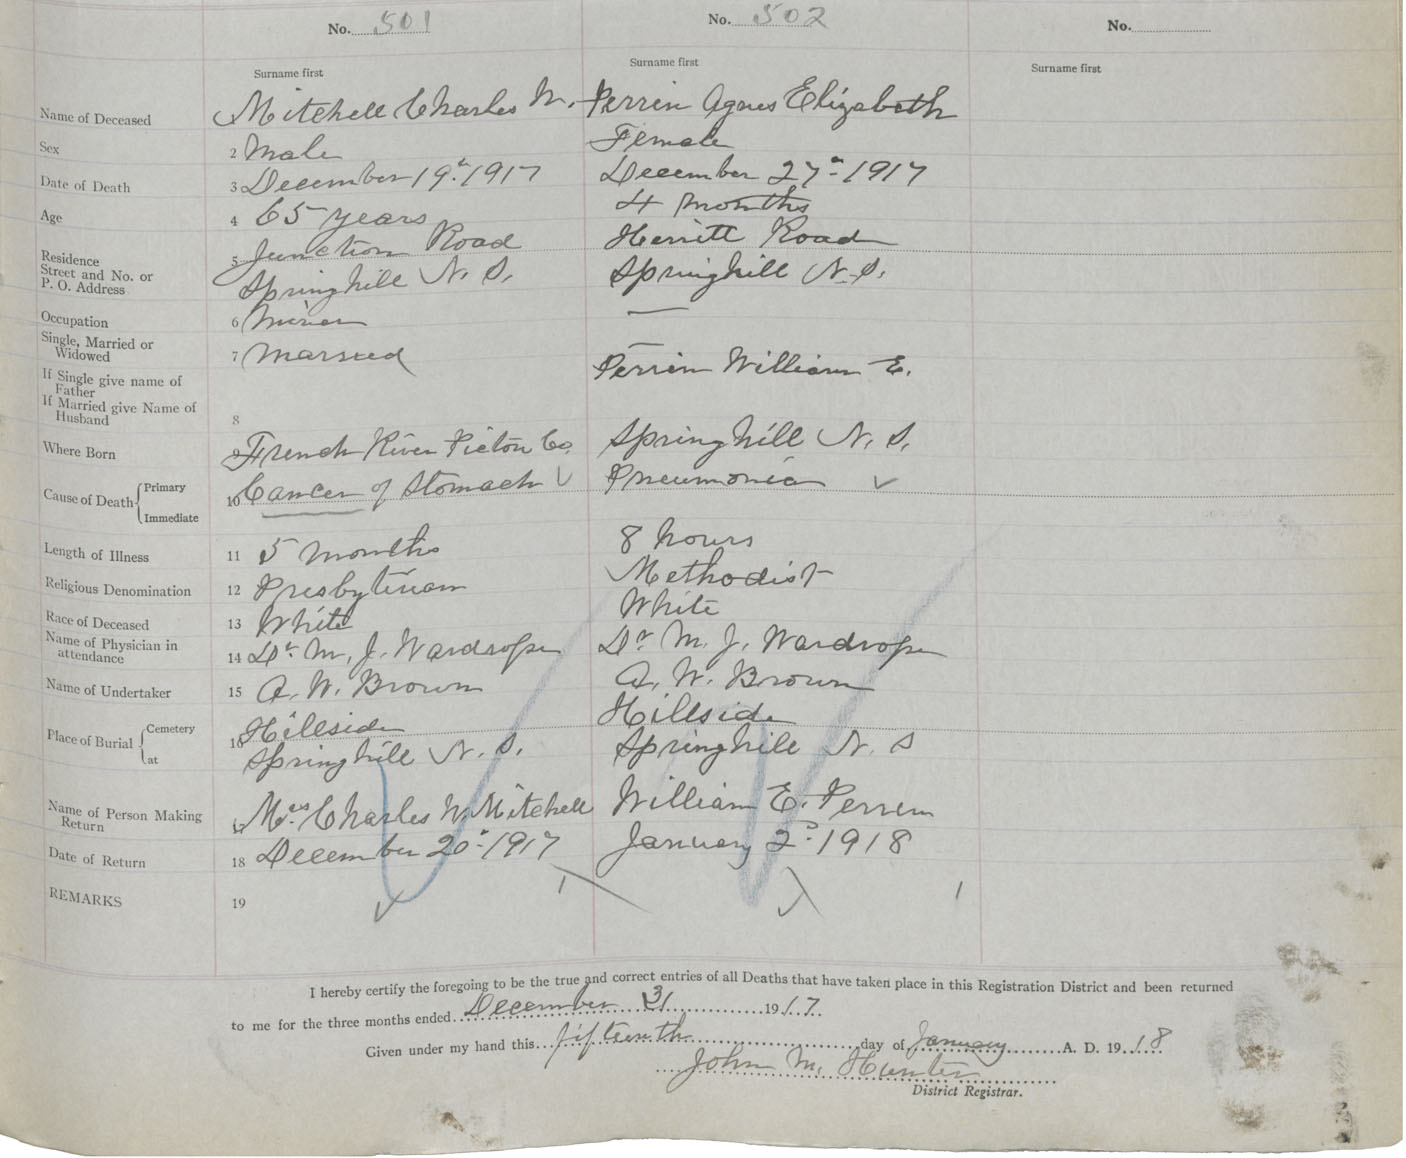 No. 501 No. 502 No.
Surname first Surname first Surname first
Name of Deceased Mitchell Charles W. Perrin Agnes Elizabeth
Sex 2 Male Female
Date of Death 3 December 19th 1917 December 27th 1917
Age 4 65 years 4 months
Residence 5 Junction Road Herritt Road
Street and No. or
P. O. Address Springhill N. S. Springhill N. S.
Occupation 6 Miner —
Single, Married or
Widowed 7 Married —
If Single give name of Perrin William E.
Father
If Married give Name of
Husband 8
Where Born French River Pictou Co. Springhill N. S.
Cause of Death Primary 10 Cancer of Stomach Pneumonia
Immediate
Length of Illness 11 5 months 8 hours
Religious Denomination 12 Presbyterian Methodist
Race of Deceased 13 White White
Name of Physician in
attendance 14 Dr. M. J. Wardrope Dr M. J. Wardrope
Name of Undertaker 15 A. W. Brown A. W. Brown
Place of Burial Cemetery 16 Hillside Hillside
at Springhill N. S. Springhill N. S
Name of Person Making
Return Mrs Charles W. Mitchell William E. Perrin
Date of Return 18 December 20th 1917 January 2nd 1918
REMARKS 19
I hereby certify the foregoing to be the true and correct entries of all Deaths that have taken place in this Registration District and been returned
to me for the three months ended December 31 1917.
Given under my hand this fifteenth day of January A. D. 1918
John M. Hunter
District Registrar.